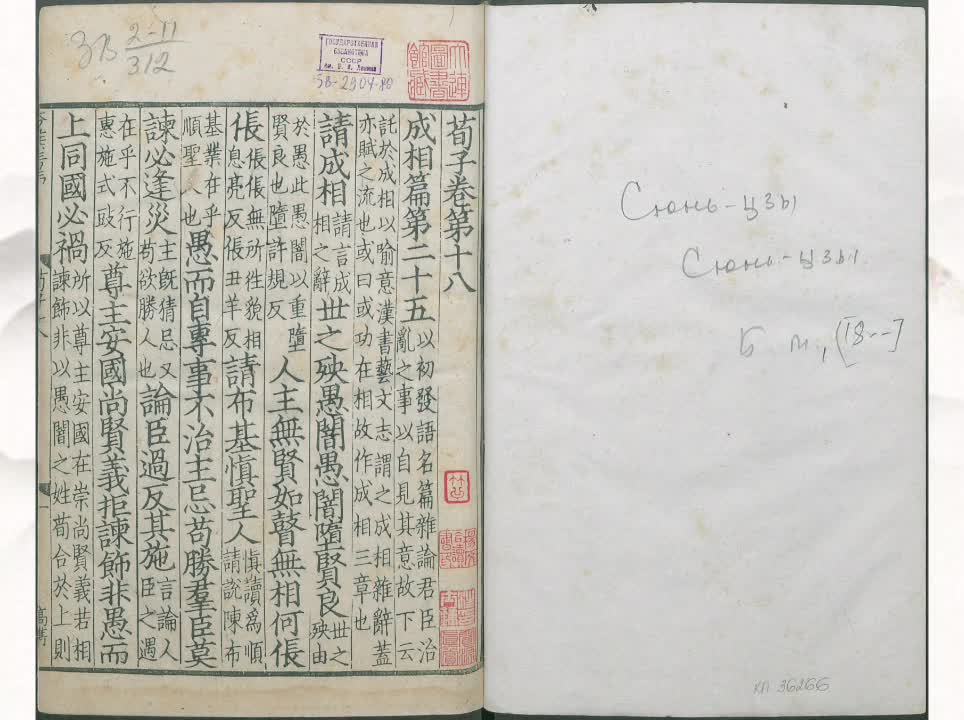 3B 2-11
312
ГОСУДАРСТВЕННАЯ
БИБЛИОТЕКА
СССР
им. В. И. Ленина
5В-2904-80
大連圖書館藏
荀子卷第十八
成相篇第二十五 以初發語名篇雜論君臣治亂之事以自見其意故下云
託於成相以喻意漢書藝文志謂之成相雜辭蓋亦賦之流也或曰或功在相故作成相三章也
請成相 請言成相之辭 世之殃愚闇愚闇墮賢良 世之殃由
於愚此愚闇以重墮賢良也墮許規反 人主無賢如瞽無相何倀
倀 倀倀無所往貌相息亮反倀丑羊反 請布基慎聖人 慎讀為順請說陳布
基業在乎順聖人也 愚而自專事不治主忌苟勝羣臣莫
諫必逢災 主既猜忌又苟欲勝人也 論臣過反其施 言論人臣之過
在乎不行施惠施式豉反 尊主安國尚賢義拒諫飾非愚而
上同國必禍 所以尊主安國在崇尚賢義若拒諫飾非以愚闇之性苟合於上則
荀子十八
Сюнь-цзы
Сюнь-цзы.
Б. м., [18--]
КП 36266